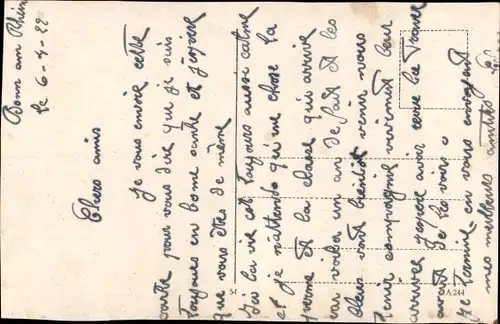 Bonn am Rhein
le 6-4-22
Chers amis
Je vous envoie cette
carte pour vous dire que je suis
toujours en bonne santé et j'espère
que vous êtes de même
Ici la vie est toujours aussi calme
et je n'attends qu'une chose la
perme et la classe qui arrive
car voilà un an de fait et les
bleus vont bientôt venir nous
tenir compagnie vivement leur
arrivée j'espère avoir
avant de les voir
Je termine en vous envoyant
mes meilleurs amitiés
54
A.244